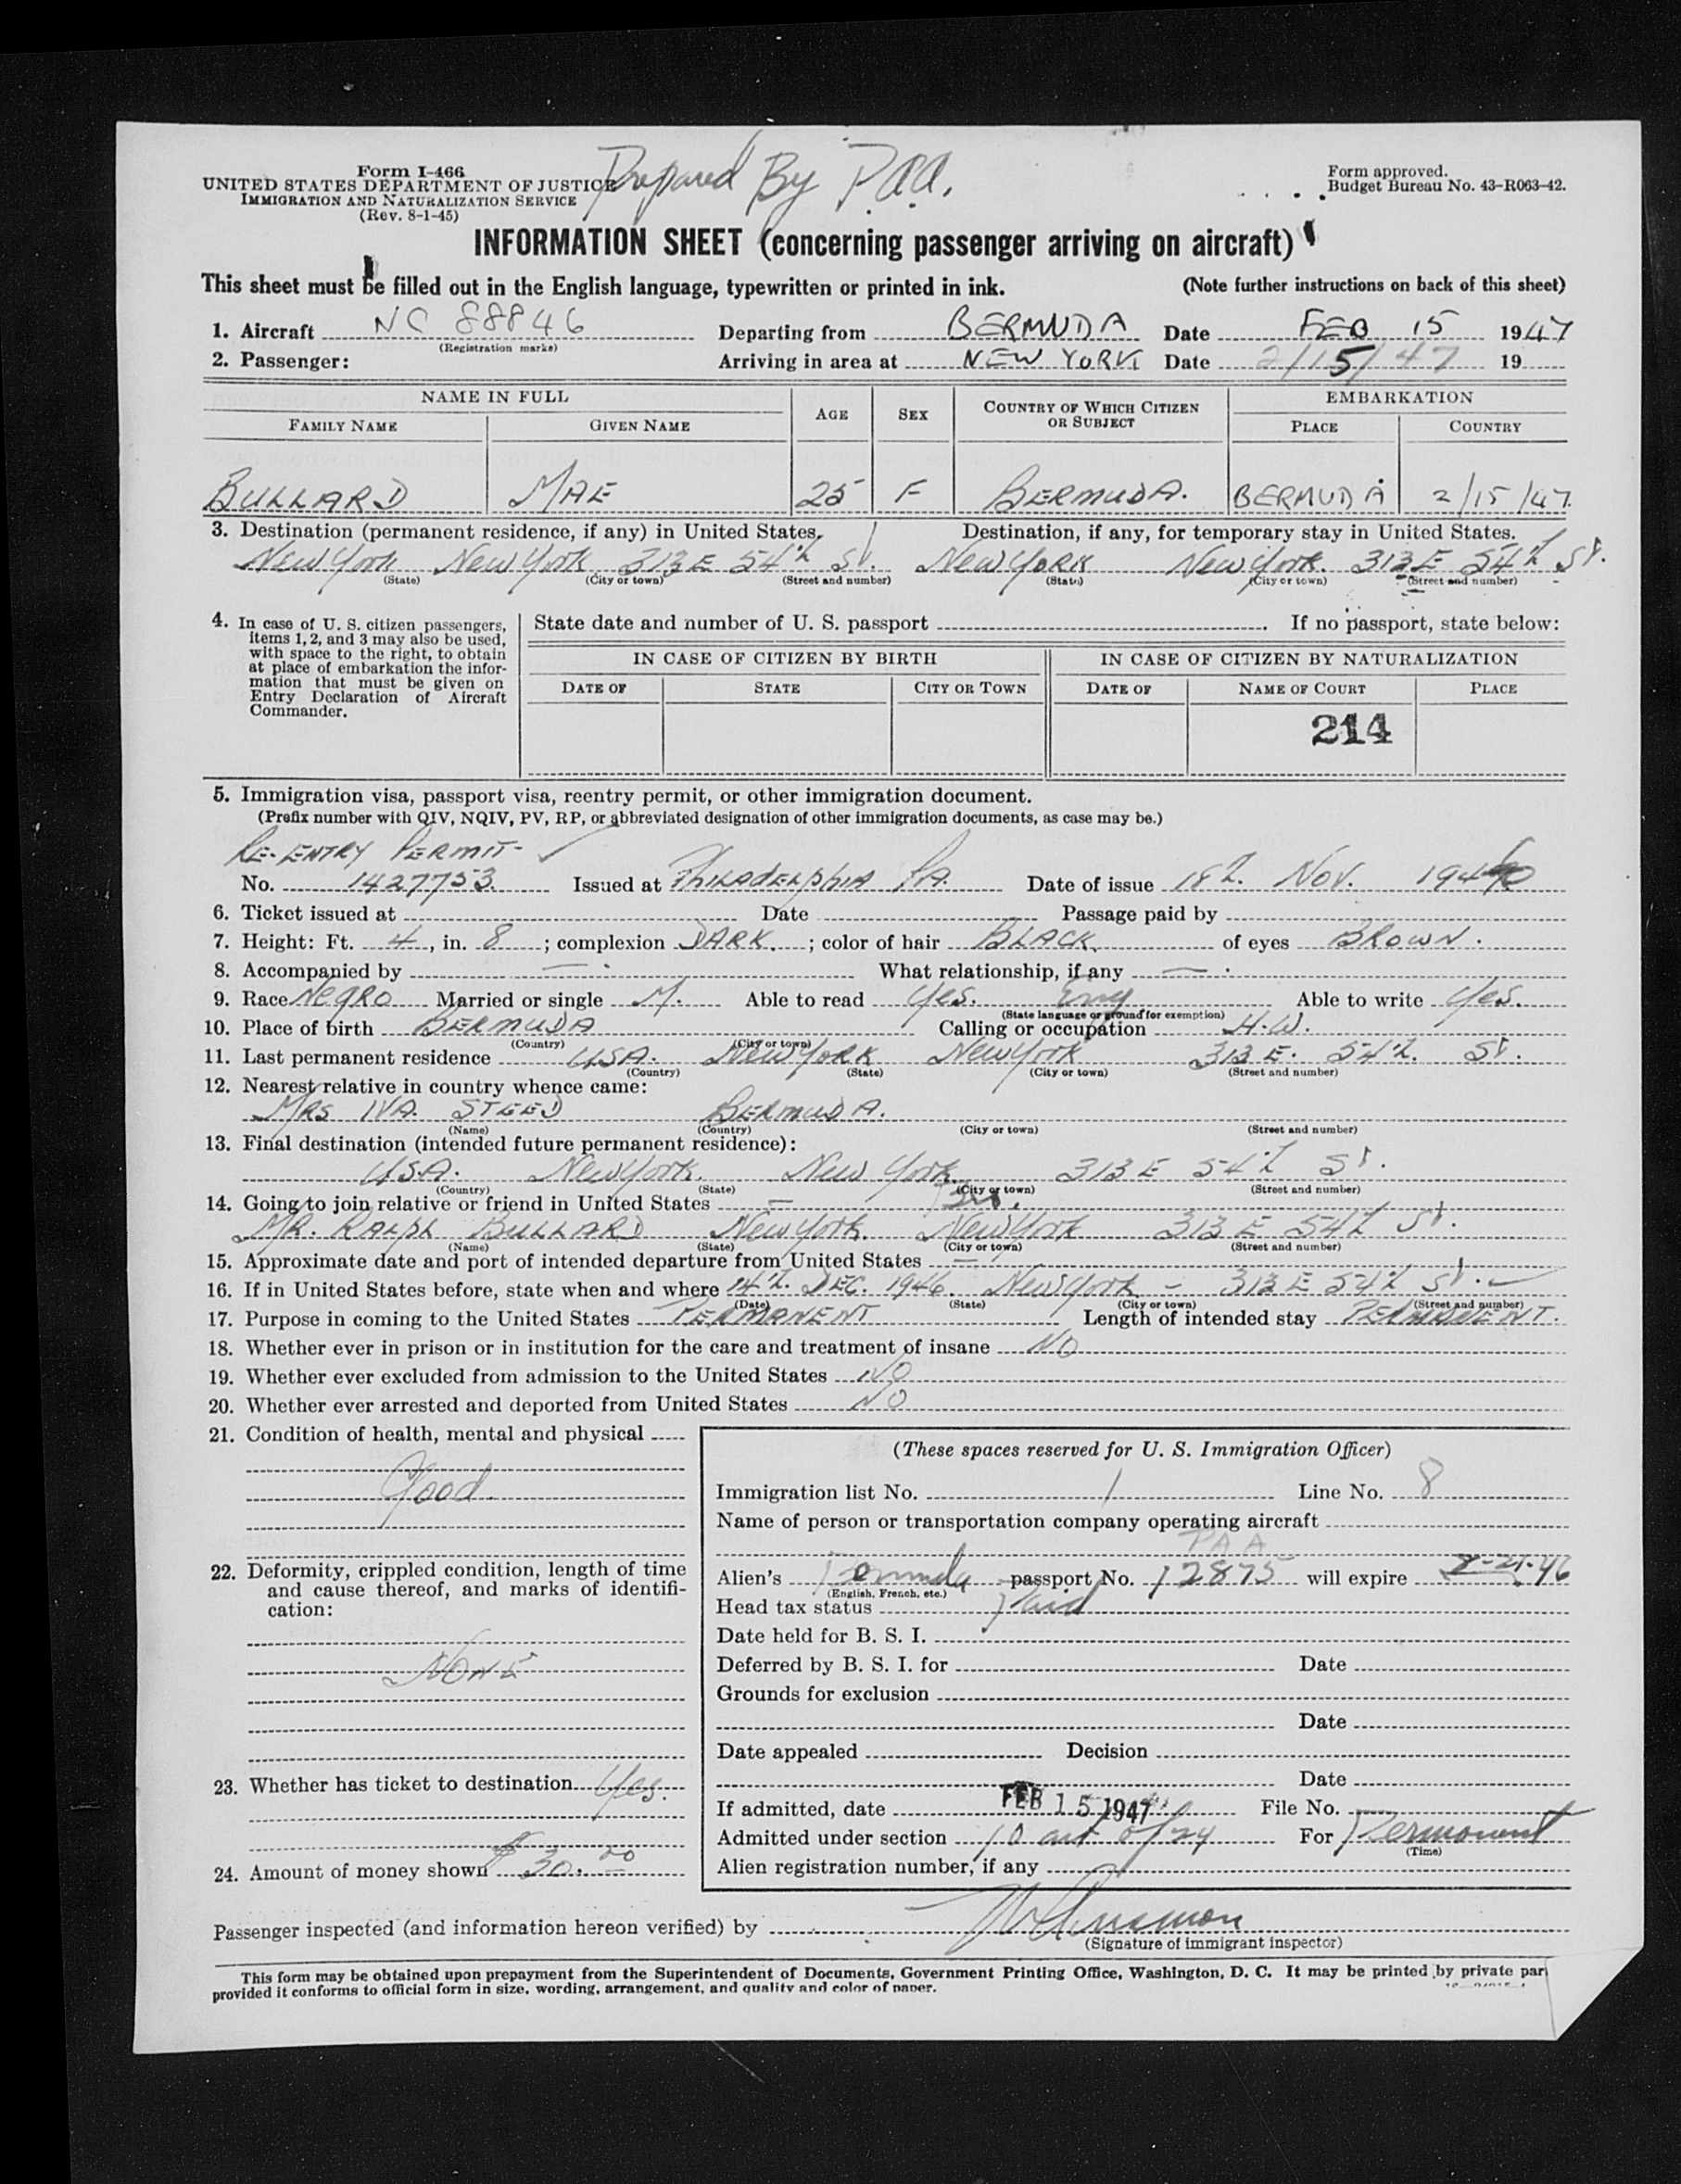 Form I-466
UNITED STATES DEPARTMENT OF JUSTICE
IMMIGRATION AND NATURALIZATION SERVICE
(Rev. 8-1-45)
Prepared By P.A.A.
Form approved.
Budget Bureau No. 43-R063-42.
INFORMATION SHEET (concerning passenger arriving on aircraft)
This sheet must be filled out in the English language, typewritten or printed in ink. (Note further instructions on back of this sheet)
1. Aircraft NC 88846 Departing from BERMUDA Date FEB 15 1947
(Registration marks)
2. Passenger: Arriving in area at NEW YORK Date 2/15/47 19
NAME IN FULL AGE SEX COUNTRY OF WHICH CITIZEN OR SUBJECT EMBARKATION
FAMILY NAME GIVEN NAME PLACE COUNTRY
BULLARD MAE 25 F BERMUDA. BERMUDA 2/15/47
3. Destination (permanent residence, if any) in United States. Destination, if any, for temporary stay in United States.
New York New York 313 E 54th St. New York New York. 313 E 54th St.
(State) (City or town) (Street and number) (State) (City or town) (Street and number)
4. In case of U. S. citizen passengers, items 1, 2, and 3 may also be used, with space to the right, to obtain at place of embarkation the information that must be given on Entry Declaration of Aircraft Commander.
State date and number of U. S. passport . If no passport, state below:
IN CASE OF CITIZEN BY BIRTH IN CASE OF CITIZEN BY NATURALIZATION
DATE OF STATE CITY OR TOWN DATE OF NAME OF COURT PLACE
214
5. Immigration visa, passport visa, reentry permit, or other immigration document.
(Prefix number with QIV, NQIV, PV, RP, or abbreviated designation of other immigration documents, as case may be.)
RE-ENTRY PERMIT-
No. 1427753 Issued at PHILADELPHIA PA. Date of issue 18th. Nov. 194
6. Ticket issued at Date Passage paid by
7. Height: Ft. 4, in. 8; complexion DARK.; color of hair BLACK. of eyes BROWN.
8. Accompanied by — What relationship, if any —
9. Race Negro Married or single M. Able to read Yes. Eng Able to write Yes.
(State language or ground for exemption)
10. Place of birth BERMUDA Calling or occupation H.W.
(Country) (City or town)
11. Last permanent residence USA. New York New York 313 E. 54th. St.
(Country) (State) (City or town) (Street and number)
12. Nearest relative in country whence came:
MRS IVA. STEED BERMUDA.
(Name) (Country) (City or town) (Street and number)
13. Final destination (intended future permanent residence):
U.S.A. New York. New York 313 E 54th St.
(Country) (State) (City or town) (Street and number)
14. Going to join relative or friend in United States —
MR. RALPH BULLARD New York. New York 313 E 54th St.
(Name) (State) (City or town) (Street and number)
15. Approximate date and port of intended departure from United States —
16. If in United States before, state when and where 14th. DEC. 1946. New York - 313 E 54th St.
(Date) (State) (City or town) (Street and number)
17. Purpose in coming to the United States PERMANENT Length of intended stay PERMANENT.
18. Whether ever in prison or in institution for the care and treatment of insane NO
19. Whether ever excluded from admission to the United States NO
20. Whether ever arrested and deported from United States NO
21. Condition of health, mental and physical
Good.
22. Deformity, crippled condition, length of time and cause thereof, and marks of identification:
NONE
23. Whether has ticket to destination Yes.
24. Amount of money shown $ 30.00
(These spaces reserved for U. S. Immigration Officer)
Immigration list No. 1 Line No. 8
Name of person or transportation company operating aircraft
PAA
Alien's Bermuda passport No. 12875 will expire
(English, French, etc.)
Head tax status Paid
Date held for B. S. I.
Deferred by B. S. I. for Date
Grounds for exclusion
Date
Date appealed Decision
Date
If admitted, date FEB 15 1947 File No.
Admitted under section 10 act of 24 For Permanent
(Time)
Alien registration number, if any
Passenger inspected (and information hereon verified) by
(Signature of immigrant inspector)
This form may be obtained upon prepayment from the Superintendent of Documents, Government Printing Office, Washington, D. C. It may be printed by private par
provided it conforms to official form in size, wording, arrangement, and quality and color of paper.